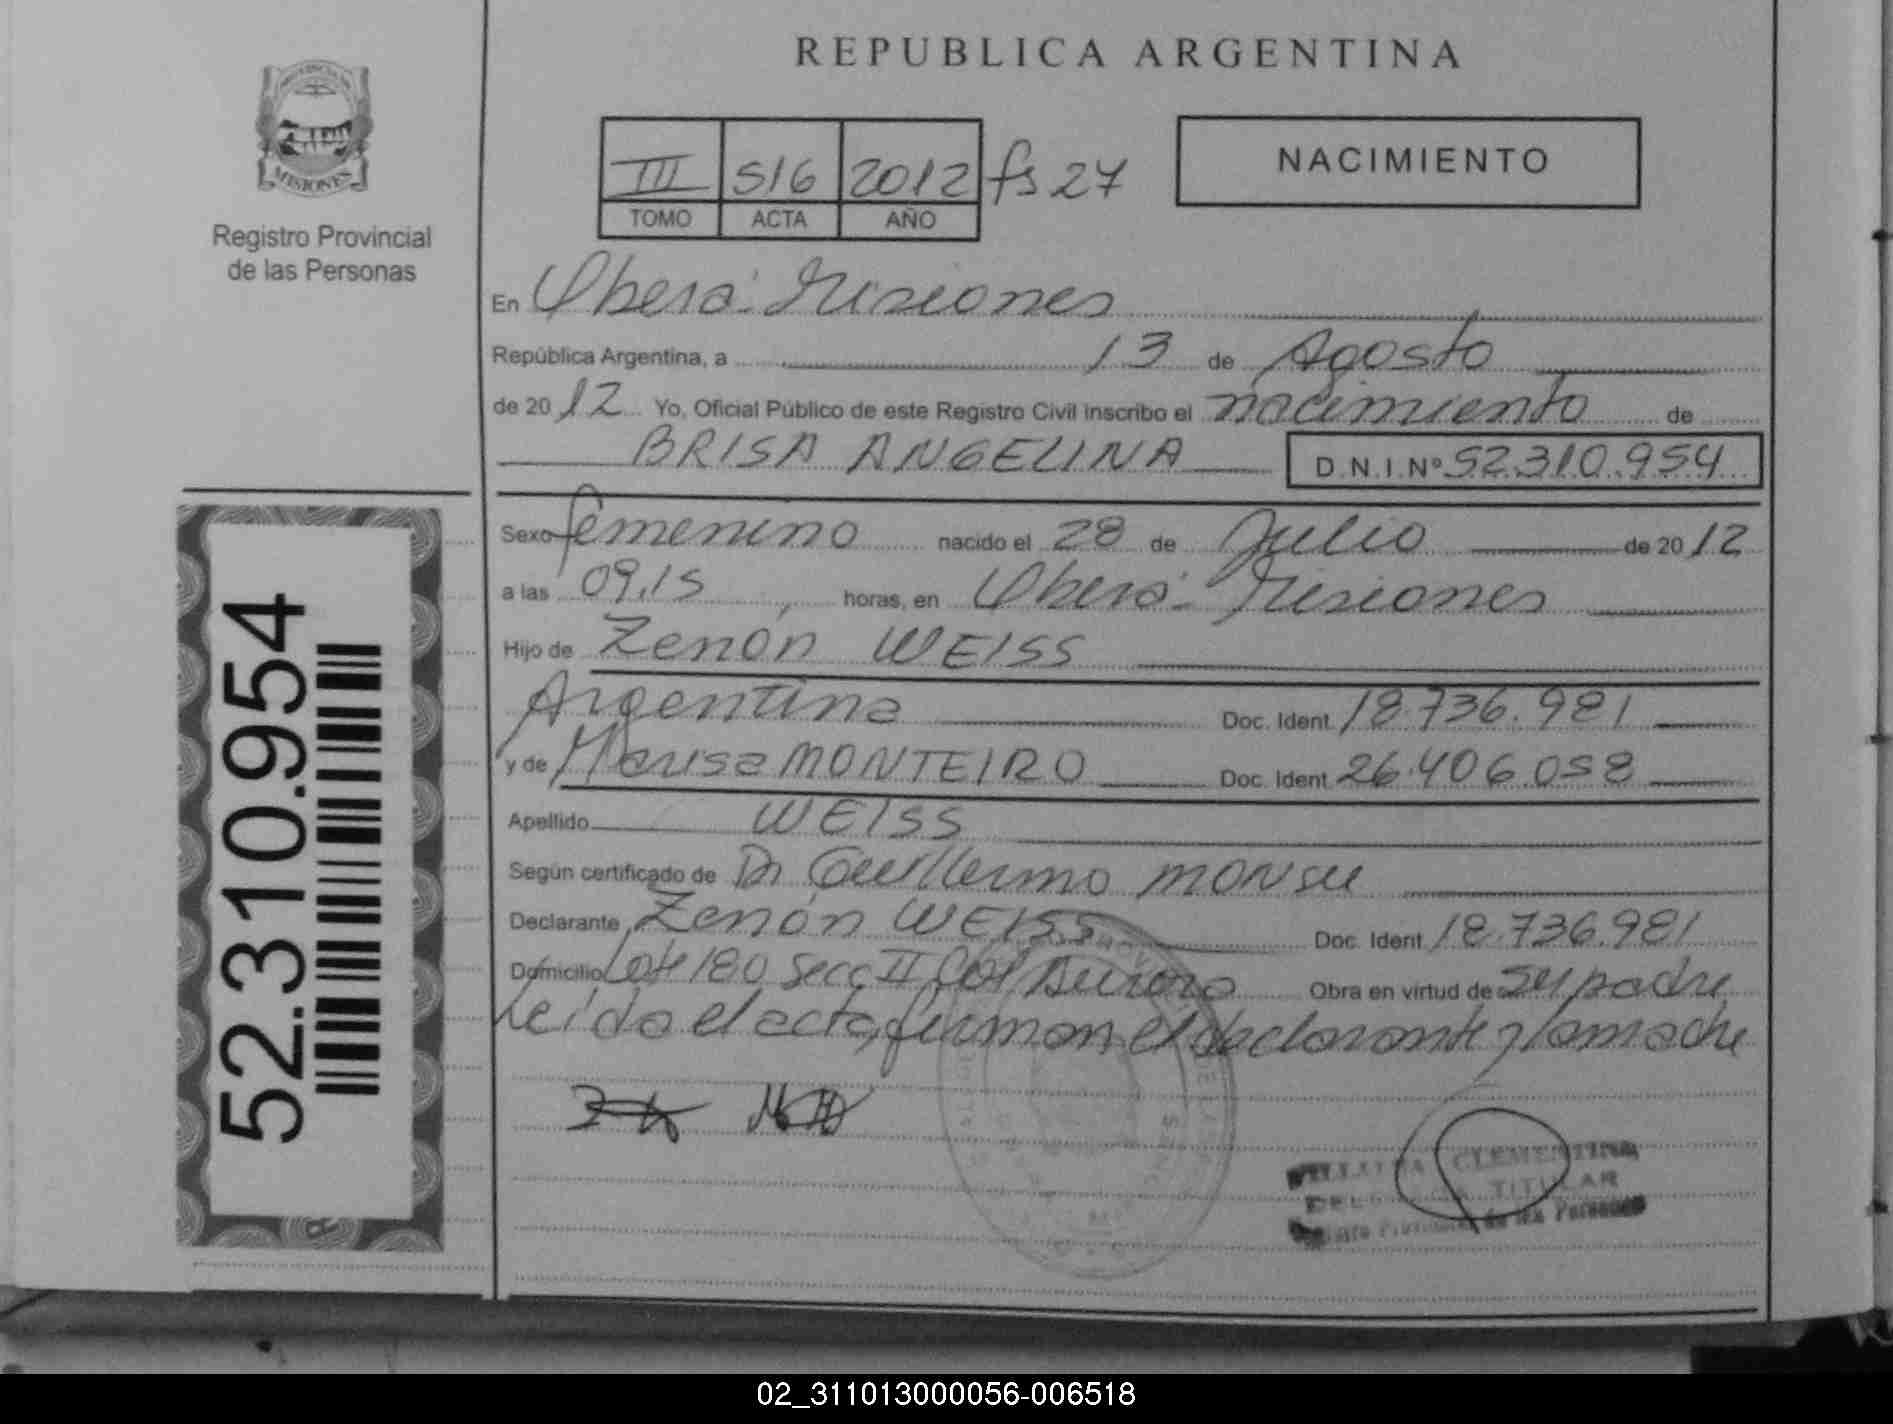 REPUBLICA ARGENTINA
PROVINCIA DE
MISIONES
Registro Provincial
de las Personas
III 516 2012 fs 27
TOMO ACTA AÑO
NACIMIENTO
En Oberá - Misiones
República Argentina, a 13 de Agosto
de 2012 Yo, Oficial Público de este Registro Civil inscribo el nacimiento de
BRISA ANGELINA D.N.I.Nº 52.310.954
Sexo femenino nacido el 28 de Julio de 2012
a las 09.15 horas, en Oberá - Misiones
Hijo de Zenón WEISS
Argentina Doc. Ident. 18.736.981
y de Marisa MONTEIRO Doc. Ident. 26.406.058
Apellido WEISS
Según certificado de Dr Guillermo MONSU
Declarante Zenón WEISS Doc. Ident. 18.736.981
Domicilio Lote 180 Secc II Col Aurora Obra en virtud de su padre
Leído el acta, firman el declarante y la madre
52.310.954
CLEMENTINA
TITULAR
de las Personas
02_311013000056-006518